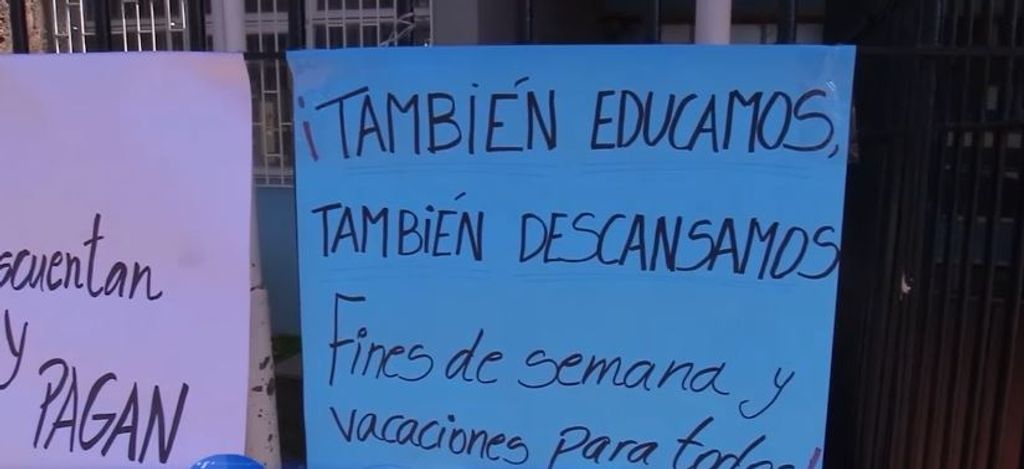 scuentan
y
PAGAN
¡TAMBIÉN EDUCAMOS,
TAMBIÉN DESCANSAMOS
Fines de semana y
vacaciones para